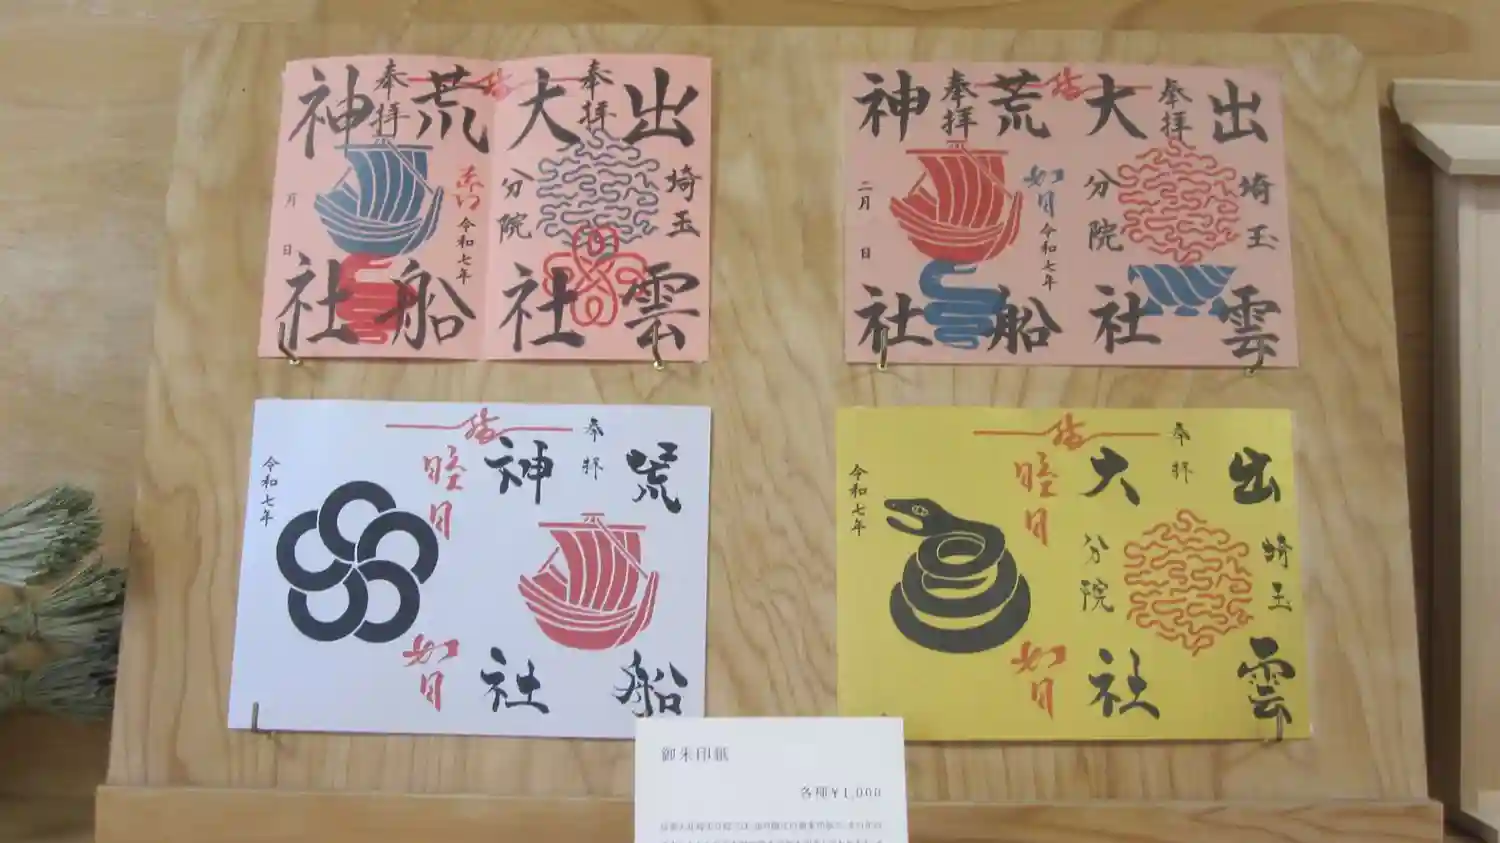 出雲大社
埼玉分院
奉拝
結
荒船神社
奉拝
令和七年
月 日
出雲大社
埼玉分院
奉拝
結
荒船神社
奉拝
如月
令和七年
二月 日
荒船神社
奉拝
結
睦月
如月
令和七年
出雲大社
埼玉分院
奉拝
結
睦月
如月
令和七年
御朱印紙
各種¥1,000